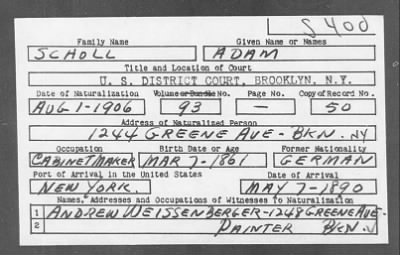 S400
Family Name Given Name or Names
SCHOLL ADAM
Title and Location of Court
U. S. DISTRICT COURT, BROOKLYN, N.Y.
Date of Naturalization Volume or Bundle No. Page No. Copy of Record No.
AUG 1-1906 93 — 50
Address of Naturalized Person
1244 GREENE AVE - BKN. NY
Occupation Birth Date or Age Former Nationality
CABINET MAKER MAR 7-1861 GERMAN
Port of Arrival in the United States Date of Arrival
NEW YORK. MAY 7-1890
Names, Addresses and Occupations of Witnesses To Naturalization
1 ANDREW WEISSENBERGER-1248 GREENE AVE-
2 PAINTER BKN.